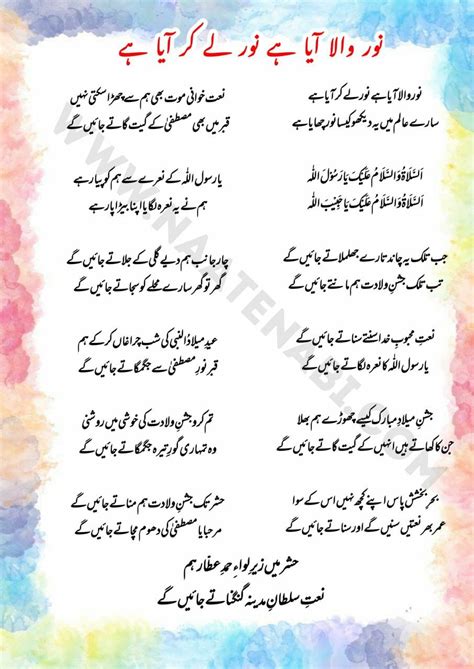 نور والا آیا ہے نور لے کر آیا ہے
نور والا آیا ہے نور لے کر آیا ہے
سارے عالم میں یہ دیکھو کیسا نور چھایا ہے
نعت خوانی موت بھی ہم سے چھڑا سکتی نہیں
قبر میں بھی مصطفیٰ کے گیت گاتے جائیں گے
اَلسَّلَامُ وَالسَّلَامُ عَلَیْکَ یَا رَسُوْلَ اللہ
اَلسَّلَامُ وَالسَّلَامُ عَلَیْکَ یَا حَبِیْبَ اللہ
یارسول اللہ کے نعرے سے ہم کو پیار ہے
ہم نے یہ نعرہ لگایا اپنا بیڑا پار ہے
جب تلک یہ چاند تارے جھلملاتے جائیں گے
تب تلک جشنِ ولادت ہم مناتے جائیں گے
چار جانب ہم دیے گھی کے جلاتے جائیں گے
گھر تو گھر سارے محلے کو سجاتے جائیں گے
نعتِ محبوبِ خدا سنتے سناتے جائیں گے
یارسول اللہ کا نعرہ لگاتے جائیں گے
عید میلاد النبی کی شب چراغاں کر کے ہم
قبر نورِ مصطفیٰ سے جگمگاتے جائیں گے
جشنِ میلادِ مبارک کیسے چھوڑے ہم بھلا
جن کا کھاتے ہیں انہیں کے گیت گاتے جائیں گے
تم کرو جشنِ ولادت کی خوشی میں روشنی
وہ تمہاری گورِ تیرہ جگمگاتے جائیں گے
بحر بخشش پاس اپنے کچھ نہیں اس کے سوا
عمر بھر نعتیں سنیں گے اور سناتے جائیں گے
حشر تک جشنِ ولادت ہم مناتے جائیں گے
مرحبا یا مصطفیٰ کی دھوم مچاتے جائیں گے
حشر میں زیرِ لواءِ حمد عطار ہم
نعتِ سلطانِ مدینہ گنگناتے جائیں گے
WWW.NAATENABI.COM